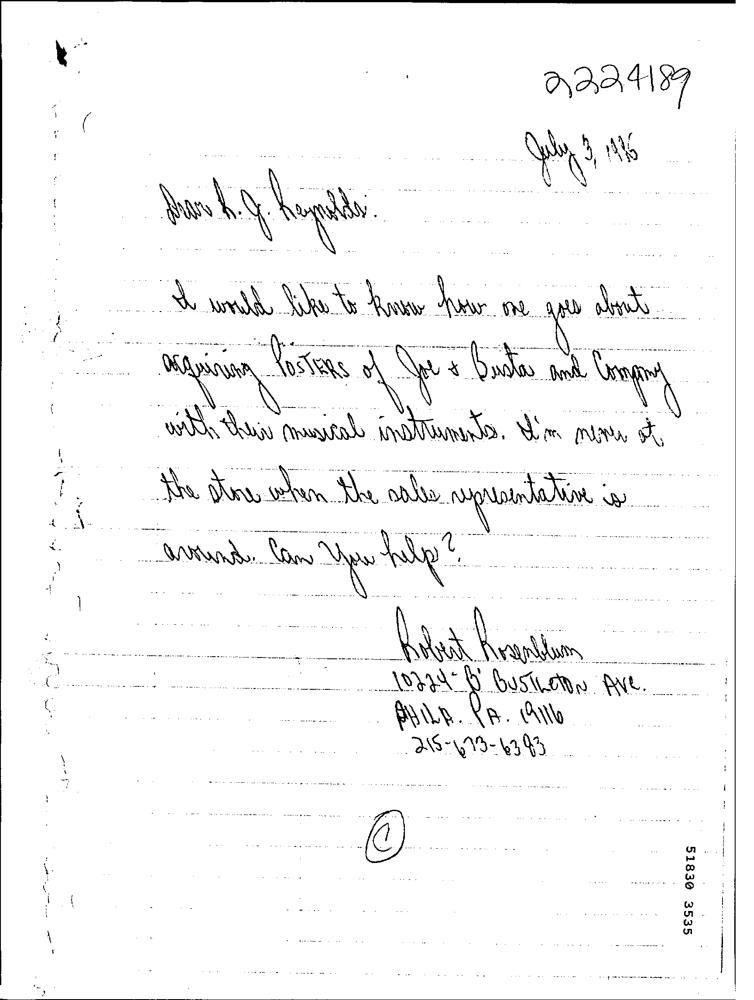 2224189
July 3, 1996
Dear R. J. Reynolds:
I would like to know how one goes about
acquiring POSTERS of Joe & Busta and Company
with their musical instruments. I'm never at
the store when the sales representative is
around. Can you help?
Robert Rosenblum
10224-B' BUSTLETON AVE.
PHILA. PA. 19116
215-673-6383
C
51830 3535